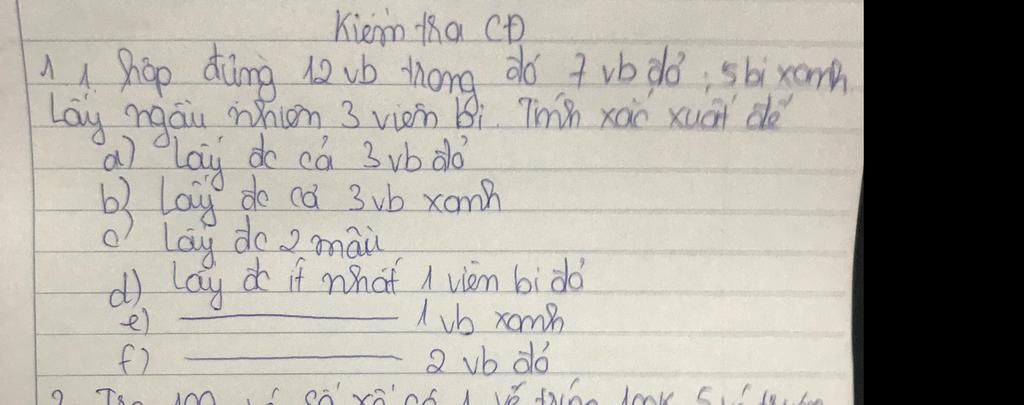 Kiểm tra CĐ
1 1 hộp đựng 12 vb trong đó 7 vb đỏ, 5 bi xanh
Lấy ngẫu nhiên 3 viên bi. Tính xác xuất để
a) Lấy đc cả 3 vb đỏ
b) Lấy đc cả 3 vb xanh
c) Lấy đc 2 màu
d) Lấy đc ít nhất 1 viên bi đỏ
e) ——— 1 vb xanh
f) ——— 2 vb đỏ
2. 100 vé số có 1 vé trúng 5 vé